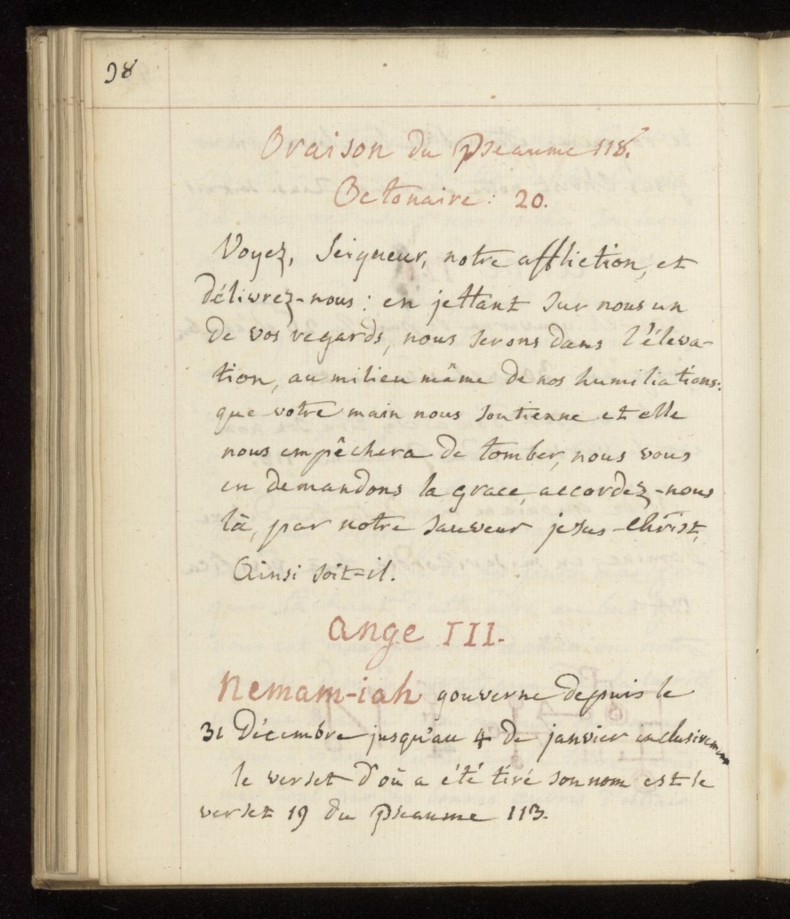 98
Oraison du Pseaume 118.
Octonaire: 20.
Voyez, Seigneur, notre affliction, et
délivrez-nous: en jettant sur nous un
de vos regards, nous serons dans l'éleva-
tion, au milieu même de nos humiliations:
que votre main nous soutienne et elle
nous empêchera de tomber, nous vous
en demandons la grace, accordez-nous
là, par notre sauveur jesus-Christ,
Ainsi soit=il.
ange III.
Nemam-iah gouverne depuis le
31 Décembre jusqu'au 4 de janvier inclusivement
le verset d'où a été tiré son nom est le
verset 19 du Pseaume 113.